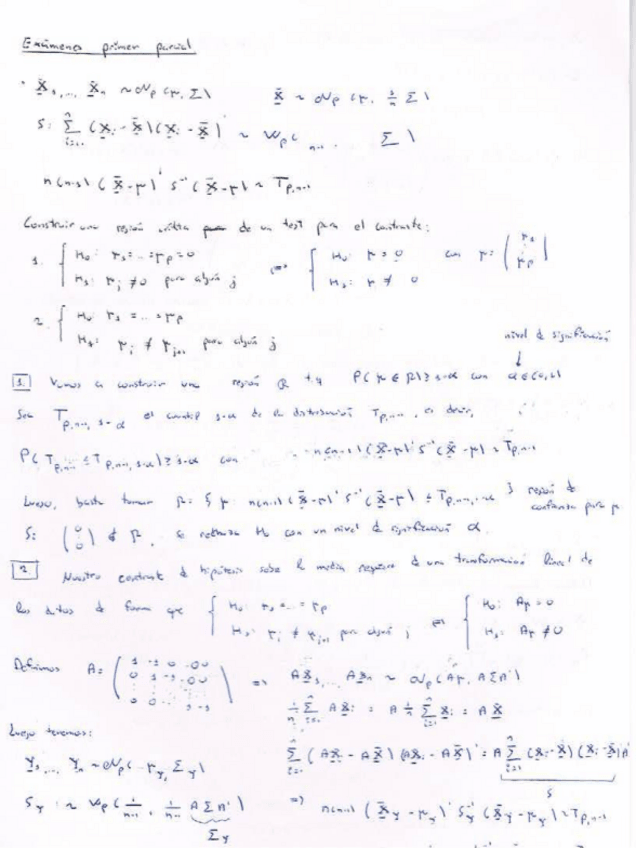 Exámenes primer parcial
· X̲₁,... X̲ₙ ~ Nₚ(μ, Σ)    X̲̄ ~ Nₚ(μ, 1/n Σ)
S: Σᵢ₌₁ⁿ (X̲ᵢ - X̲̄)(X̲ᵢ - X̲̄)' ~ Wₚ(n-1, Σ)
n(n-1)(X̲̄ - μ)' S⁻¹ (X̲̄ - μ) ~ T p,n-1
Construir una región crítica de un test para el contraste:
1. { H₀: μ₁=...=μₚ=0    ⟺    { H₀: μ=0    con μ: (μ₁ ⋮ μₚ)
H₁: μⱼ ≠ 0 para algún j    H₁: μ ≠ 0
2. { H₀: μ₁=...=μₚ
H₁: μⱼ ≠ μⱼ₊₁ para algún j
nivel de significación
↓
1. Vamos a construir una región R tq P(μ ∈ R) ≥ 1-α con α ∈ (0,1)
Sea T p,n-1, 1-α el cuantil 1-α de la distribución T p,n-1, es decir,
P(T p,n-1 ≤ T p,n-1, 1-α) ≥ 1-α con n(n-1)(X̲̄-μ)' S⁻¹ (X̲̄-μ) ~ T p,n-1
Luego, basta tomar R = { μ: n(n-1)(X̲̄-μ)' S⁻¹ (X̲̄-μ) ≤ T p,n-1, 1-α } región de
confianza para μ
Si (0 ⋮ 0) ∉ R, se rechaza H₀ con un nivel de significación α.
2 Nuestro contraste de hipótesis sobre la media requiere de una transformación lineal de
los datos de forma que { H₀: μ₁=...=μₚ    ⟺    { H₀: Aμ = 0
H₁: μⱼ ≠ μⱼ₊₁ para algún j    H₁: Aμ ≠ 0
Definimos A = (1 -1 0 ..00
0 1 -1 ..00
0 0 .. 1 -1) ⇒ AX̲₁,... AX̲ₙ ~ Nₚ(Aμ, AΣA')
1/n Σᵢ₌₁ⁿ AX̲ᵢ = A 1/n Σᵢ₌₁ⁿ X̲ᵢ = AX̲̄
Luego tenemos:
Σᵢ₌₁ⁿ (AX̲ᵢ - AX̲̄)(AX̲ᵢ - AX̲̄)' = A Σᵢ₌₁ⁿ (X̲ᵢ-X̲̄)(X̲ᵢ-X̲̄)'A'
S
Y̲₁,... Y̲ₙ ~ Nₚ(μ_y, Σ_y)
S_y ~ Wₚ(1/n-1, 1/n-1 AΣA') ⇒ n(n-1)(X̲̄_y - μ_y)' S_y⁻¹ (X̲̄_y - μ_y) ~ T p,n-1
Σ_y